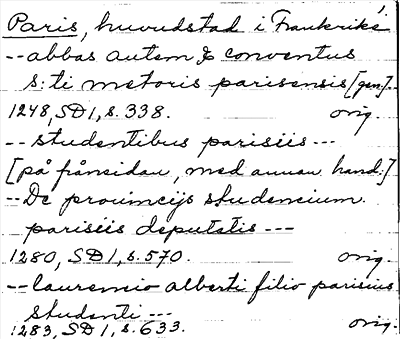 Paris, huvudstad i Frankrike
--abbas autem & conventus
s:ti metoris parisensis [gen]--
1248, SD1, s. 338. orig.
--studentibus parisiis---
[på frånsidan, med annan hand:]
--De prouincijs studencium
parisiis deputatis---
1280, SD1, s. 570. orig.
--laurencio alberti filio parisius
studenti---
1283, SD1, s. 633. orig.